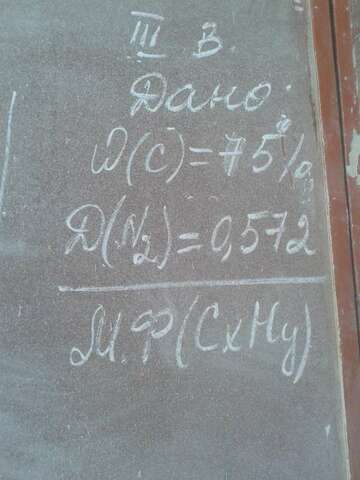 III В.
Дано:
W(C)=75%
Д(N₂)=0,572
М.Ф(CxHy)